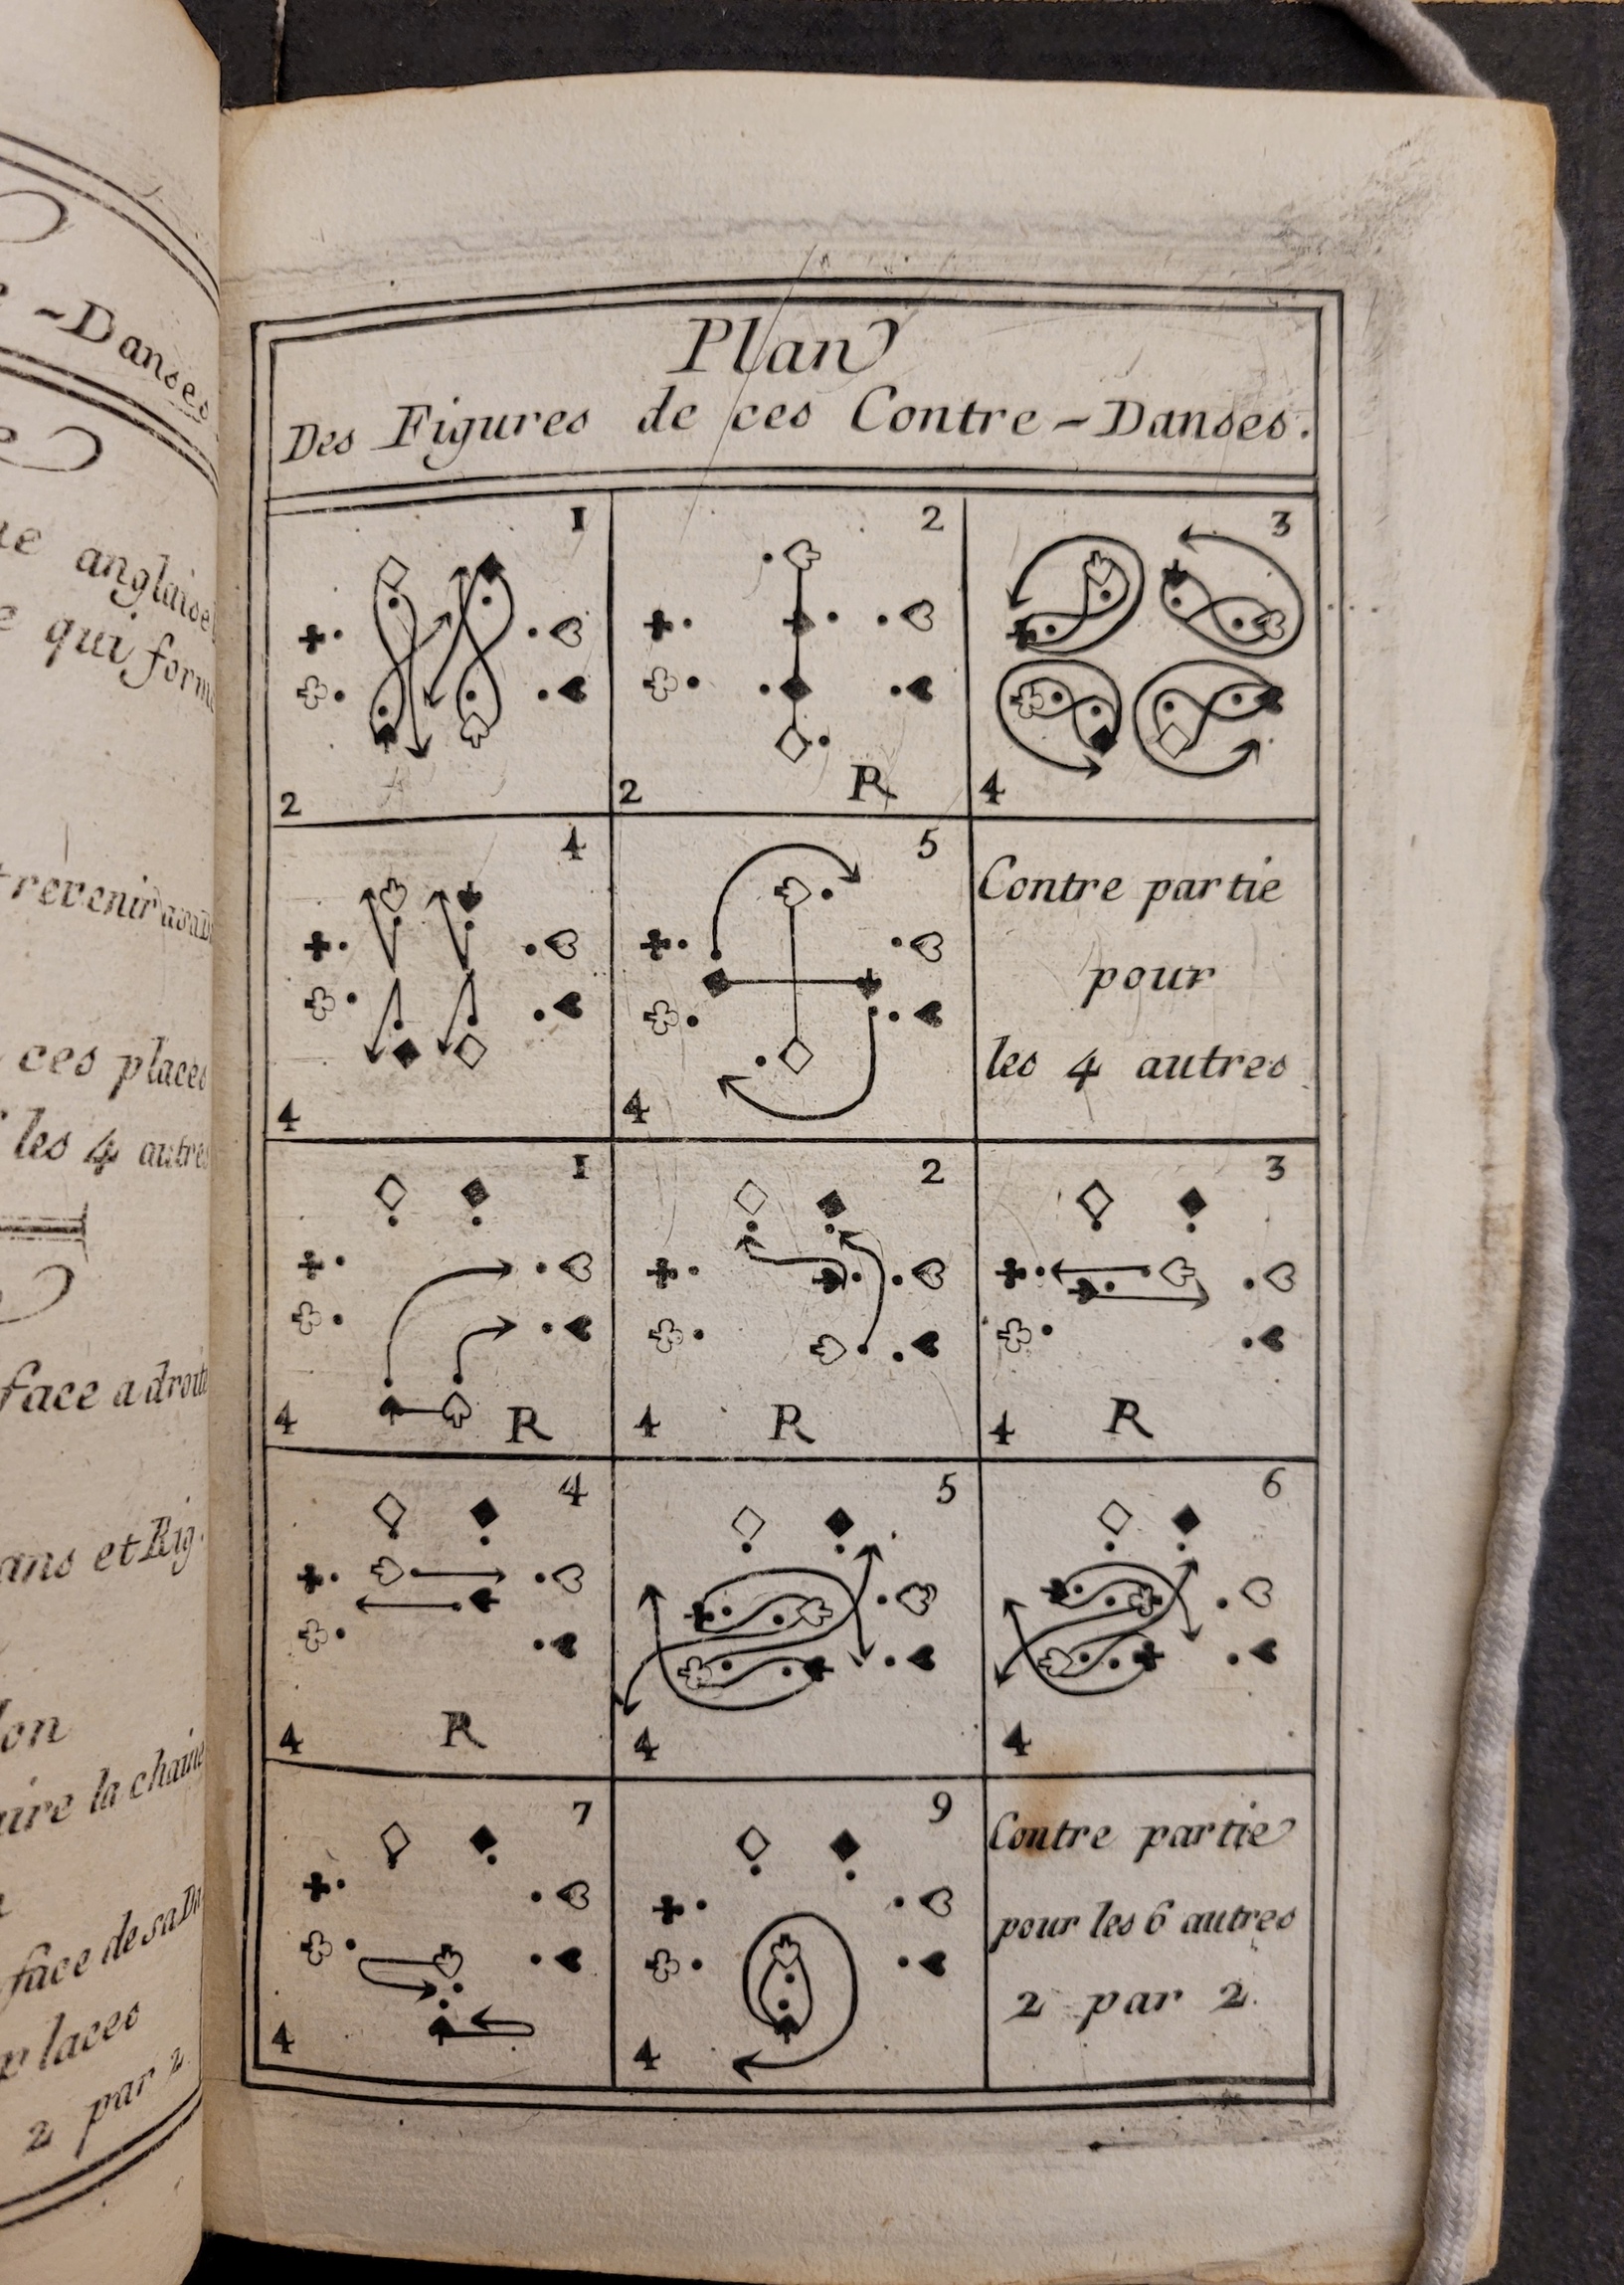 -Danses
anglaise
qui
revenir
ces places
les 4 autres
face a droite
ans et Rig.
la chaine
face de sa
places
2 par 2
Plan
Des Figures de ces Contre-Danses.
1
2
2
2
R
3
4
4
4
5
4
Contre partie
pour
les 4 autres
1
4
R
2
4
R
3
4
R
4
4
R
5
4
6
4
7
4
9
4
Contre partie
pour les 6 autres
2 par 2.